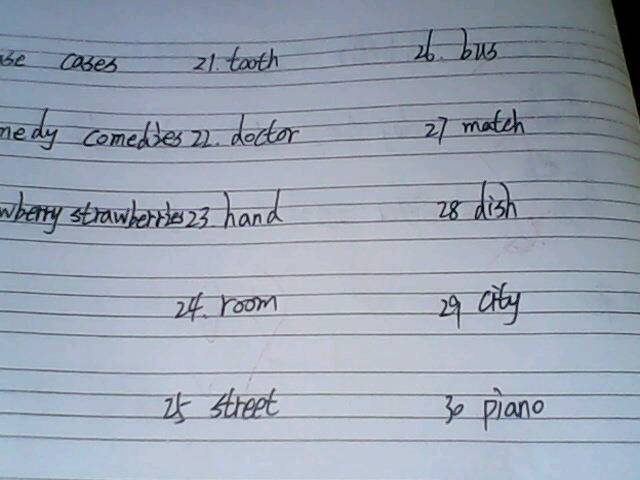 cases 21. tooth 26. bus
comedies 22. doctor 27 match
strawberries 23. hand 28 dish
24. room 29 city
25 street 30 piano